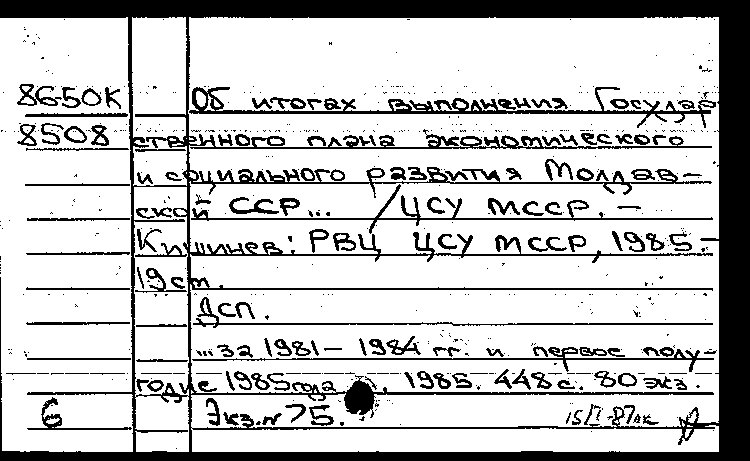 8650К Об итогах выполнения Государ
8508 ственного плана экономического
и социального развития Молдав-
ской ССР... / ЦСУ МССР. —
Кишинев: РВЦ ЦСУ МССР, 1985.-
19 см.
ДСП.
...за 1981 — 1984 гг. и первое полу-
годие 1985 года. 1985. 448 с. 80 экз.
6 Экз. № 75.